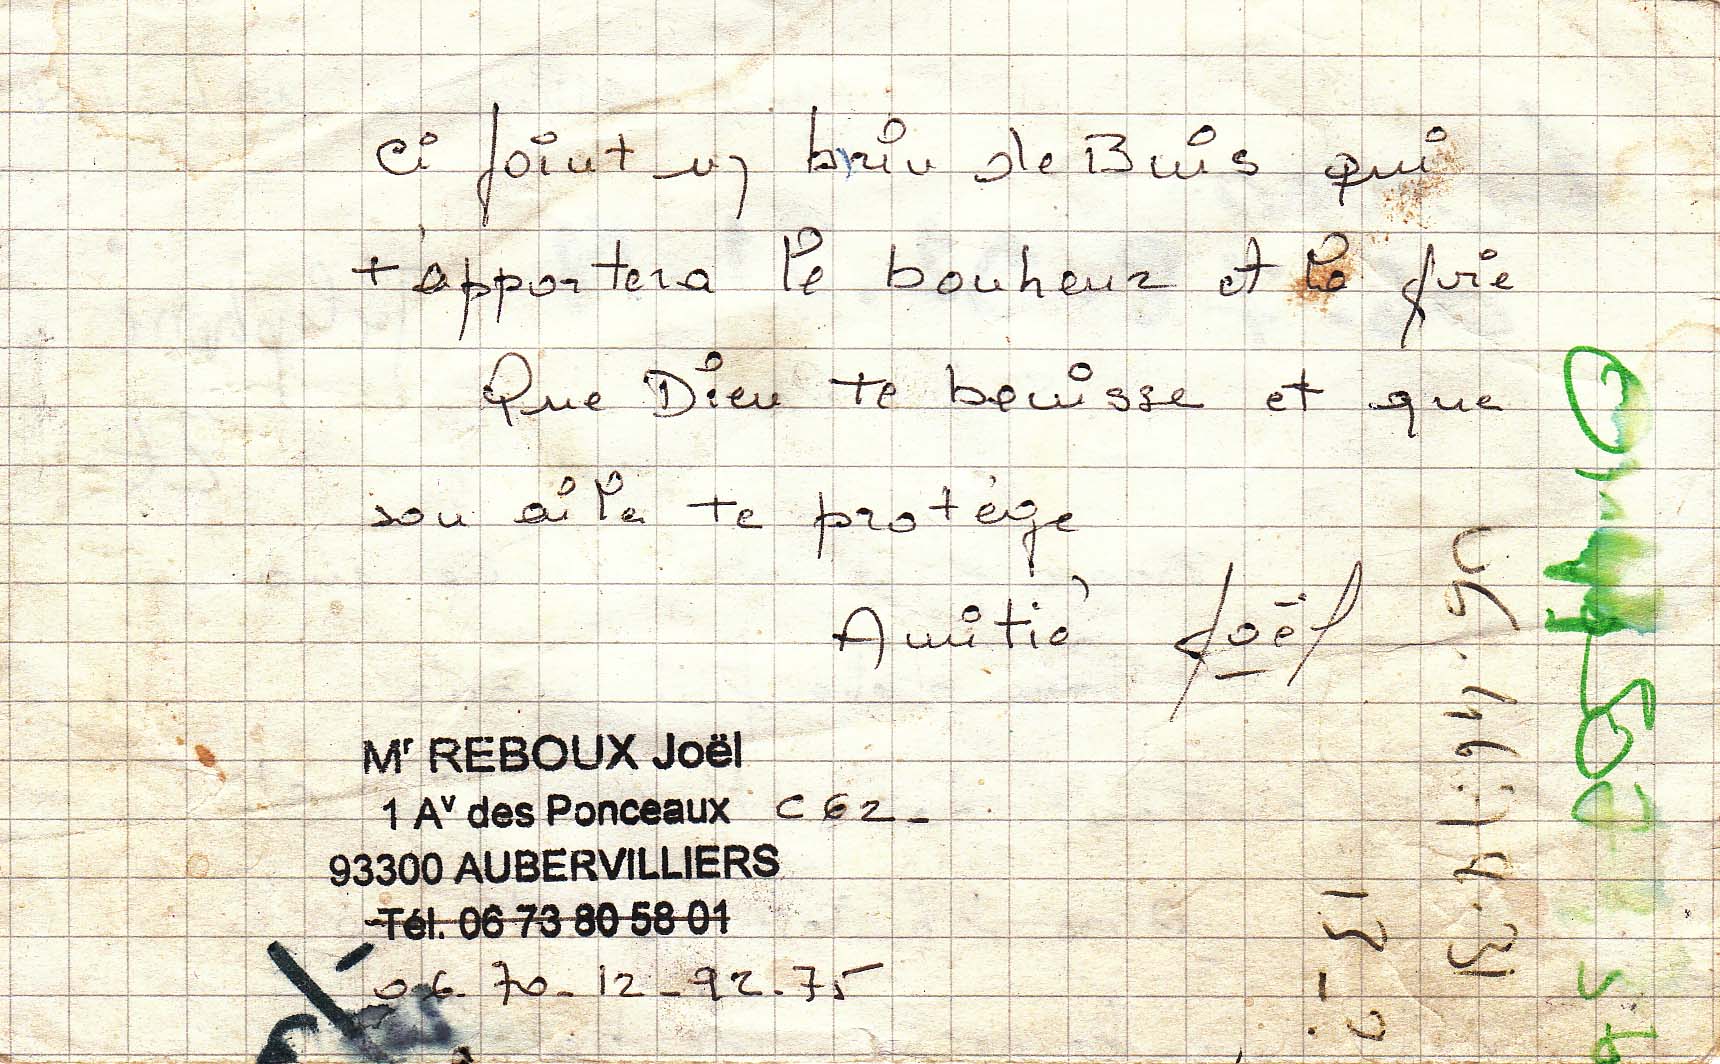 ci joint un brin de Buis qui
t'apportera le bonheur et la joie
Que Dieu te benisse et que
son aile te protège
Amitié Joël
Mr REBOUX Joël
1 Av des Ponceaux C 62 -
93300 AUBERVILLIERS
Tél. 06 73 80 58 01
06-70-12-92-75